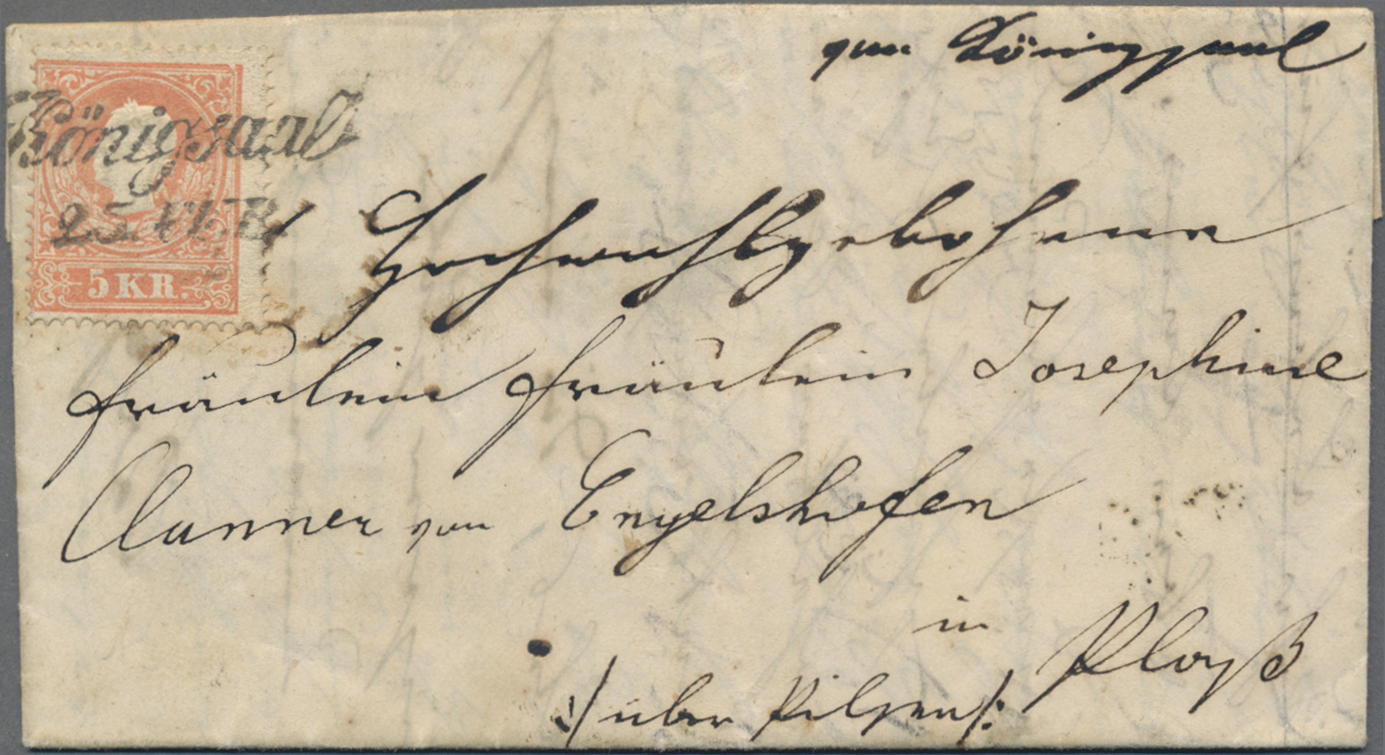 von Königsaal
Königsaal
25. FEB
5 KR.
Hochwohlgebohrnen
Fräulein Fräulein Josephine
Clanner von Engelshofen
in
Ployß
:/ über Pilsen /: